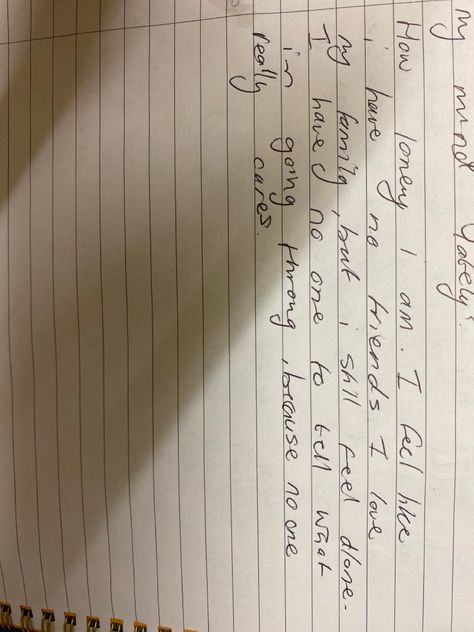 my mind lately?
How lonely I am. I feel like
i have no friends. I love
my family, but i still feel alone.
I have no one to tell what
im going throug, because no one
really cares.